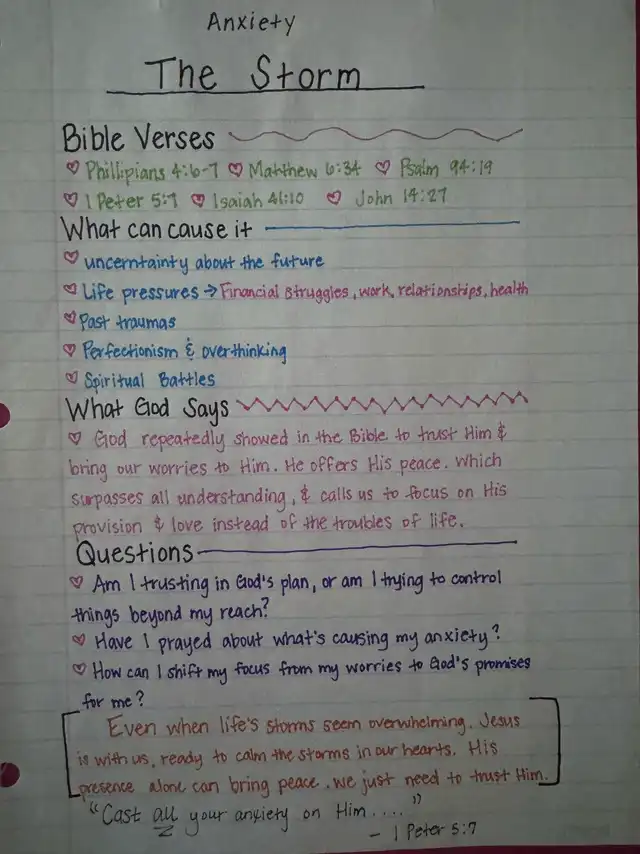 Anxiety
The Storm
Bible Verses
♡ Phillipians 4:6-7 ♡ Matthew 6:34 ♡ Psalm 94:19
♡ 1 Peter 5:7 ♡ Isaiah 41:10 ♡ John 14:27
What can cause it
♡ uncerntainty about the future
♡ Life pressures → Financial struggles, work, relationships, health
♡ Past traumas
♡ Perfectionism & overthinking
♡ Spiritual Battles
What God Says
♡ God repeatedly showed in the Bible to trust Him &
bring our worries to Him. He offers His peace. Which
surpasses all understanding, & calls us to focus on His
provision & love instead of the troubles of life.
Questions
♡ Am I trusting in God's plan, or am I trying to control
things beyond my reach?
♡ Have I prayed about what's causing my anxiety?
♡ How can I shift my focus from my worries to God's promises
for me?
Even when life's storms seem overwhelming. Jesus
is with us, ready to calm the storms in our hearts. His
presence alone can bring peace, we just need to trust Him.
"Cast all your anxiety on Him...."
- 1 Peter 5:7